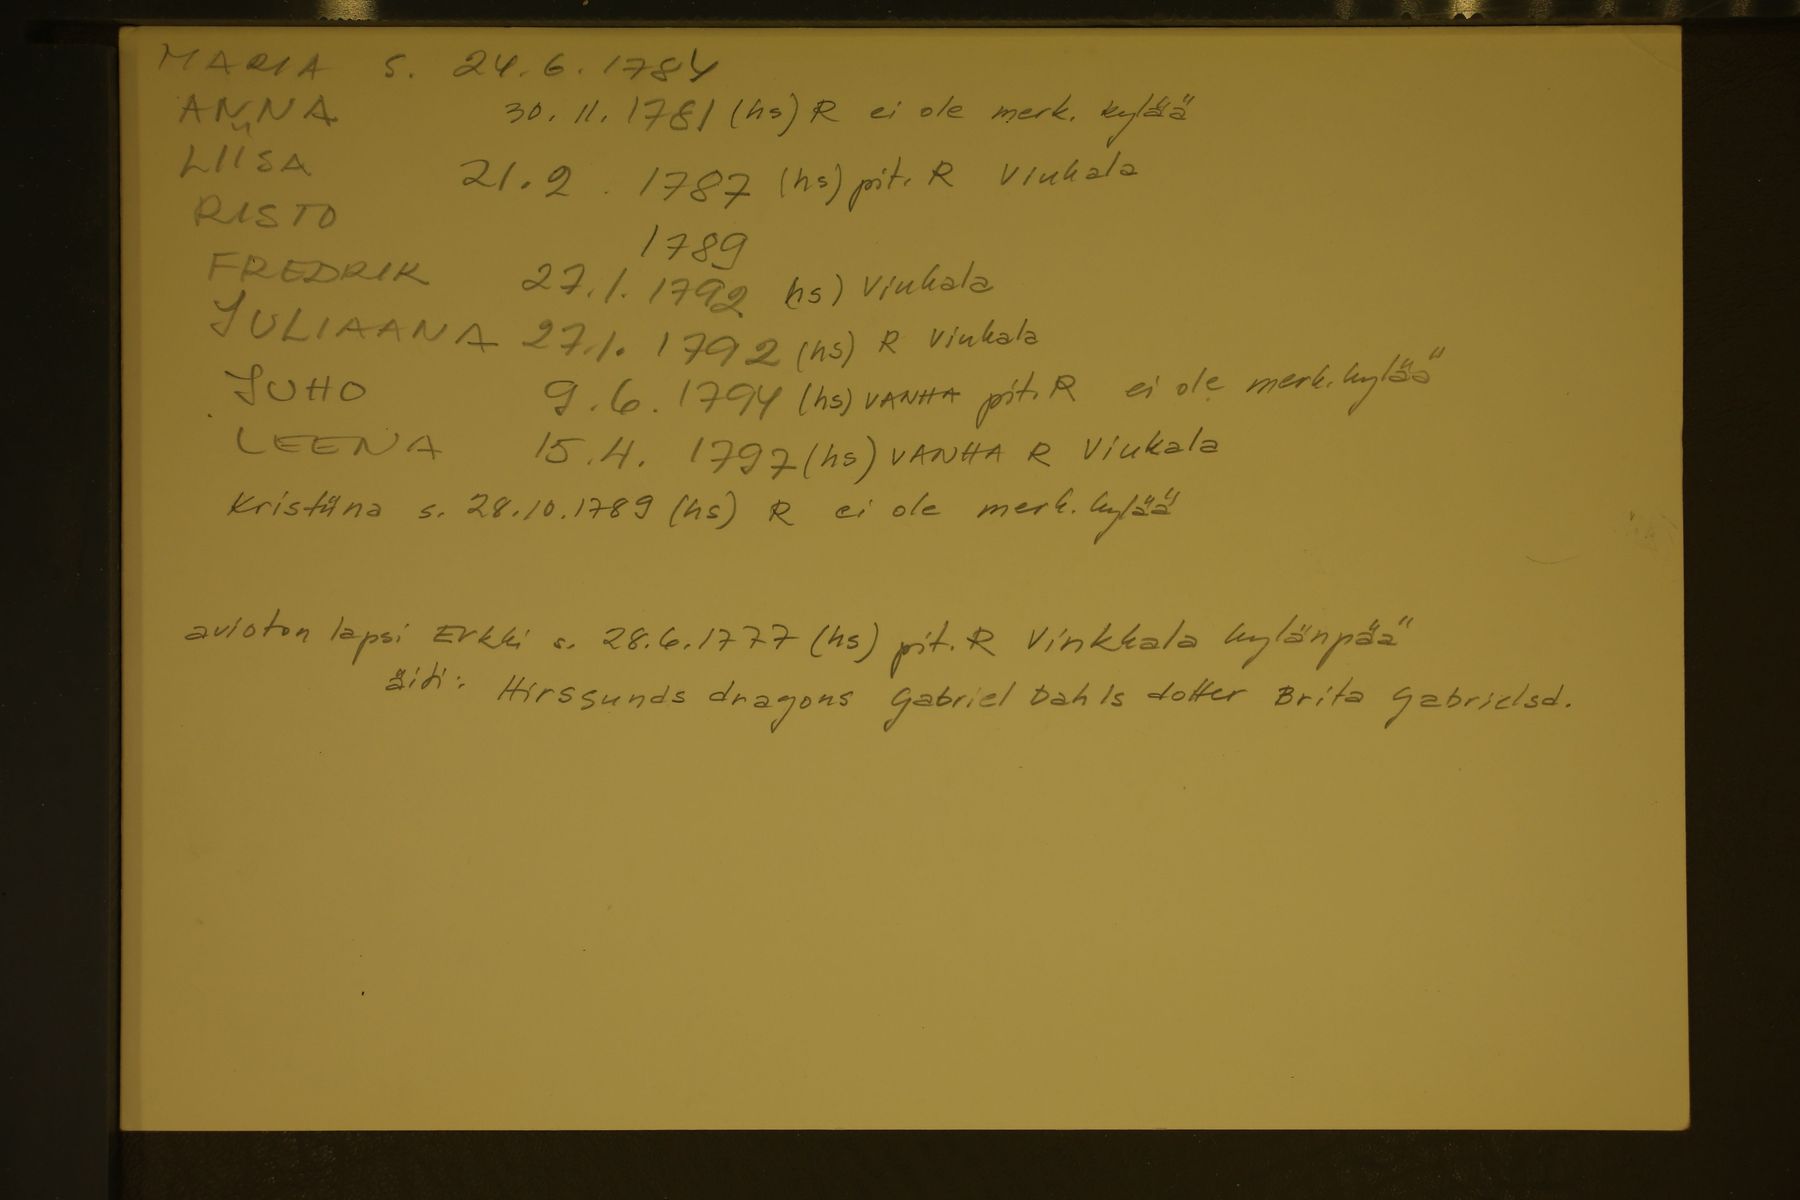 MARIA s. 24.6.1784
ANNA 30.11.1781 (hs) R ei ole merk. kylää
LIISA 21.2. 1787 (hs) pit. R Viukala
RISTO 1789
FREDRIK 27.1.1792 (hs) Viukala
JULIAANA 27.1.1792 (hs) R Viukala
JUHO 9.6.1794 (hs) VANHA pit. R ei ole merk. kylää
LEENA 15.4. 1797 (hs) VANHA R Viukala
Kristiina s. 28.10.1789 (hs) R ei ole merk. kylää
avioton lapsi Erkki s. 28.6.1777 (hs) pit. R Vinkkala kylänpää
äiti: Hirssunds dragons Gabriel Dahls dotter Brita Gabrielsd.